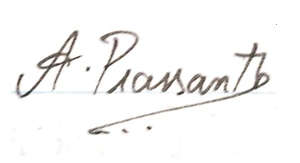 A. Prassanth